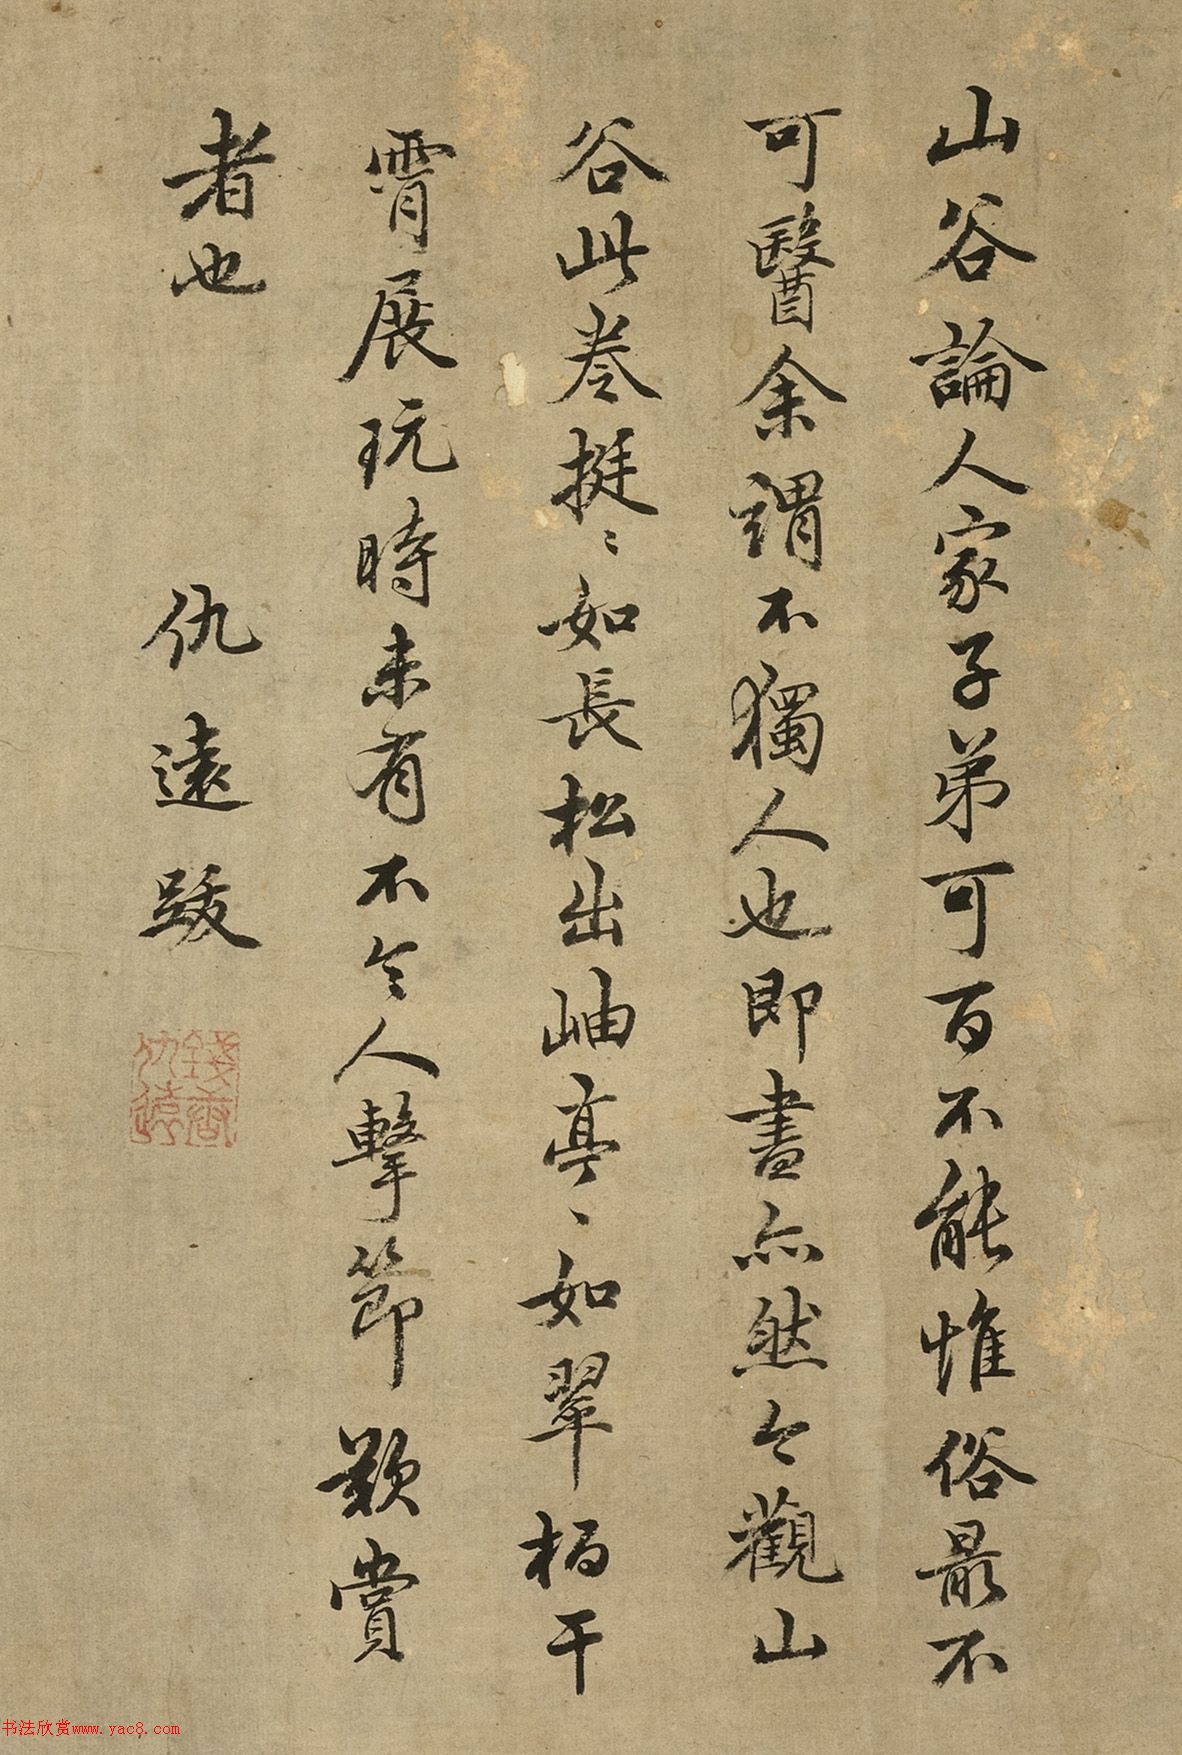 山谷論人家子弟可百不能惟俗最不
可醫余謂不獨人也即書亦然今觀山
谷此卷挺〻如長松出岫亭〻如翠柏干
霄展玩時未有不令人擊節歎賞
者也
仇遠跋
錢唐仇遠
书法欣赏www.yac8.com